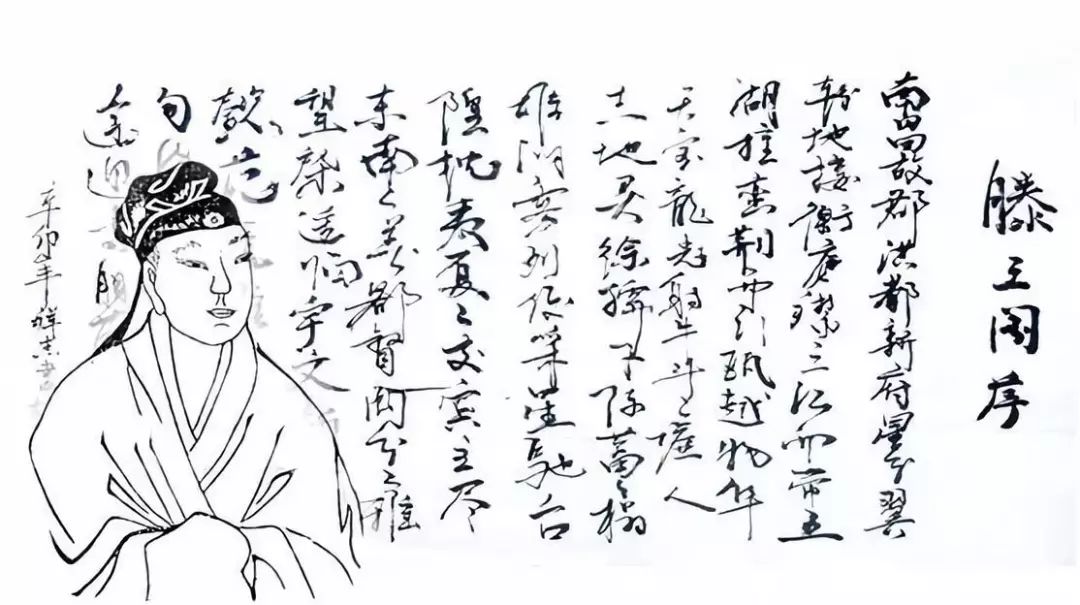 滕王阁序
南昌故郡洪都新府星分翼
轸地接衡庐襟三江而带五
湖控蛮荆而引瓯越物华
天宝龙光射牛斗之墟人
杰地灵徐孺下陈蕃之榻
雄州雾列俊采星驰台
隍枕夷夏之交宾主尽
东南之美都督阎公之雅
望棨遥临宇文新
懿范
旬
逢迎 朋
辛卯年